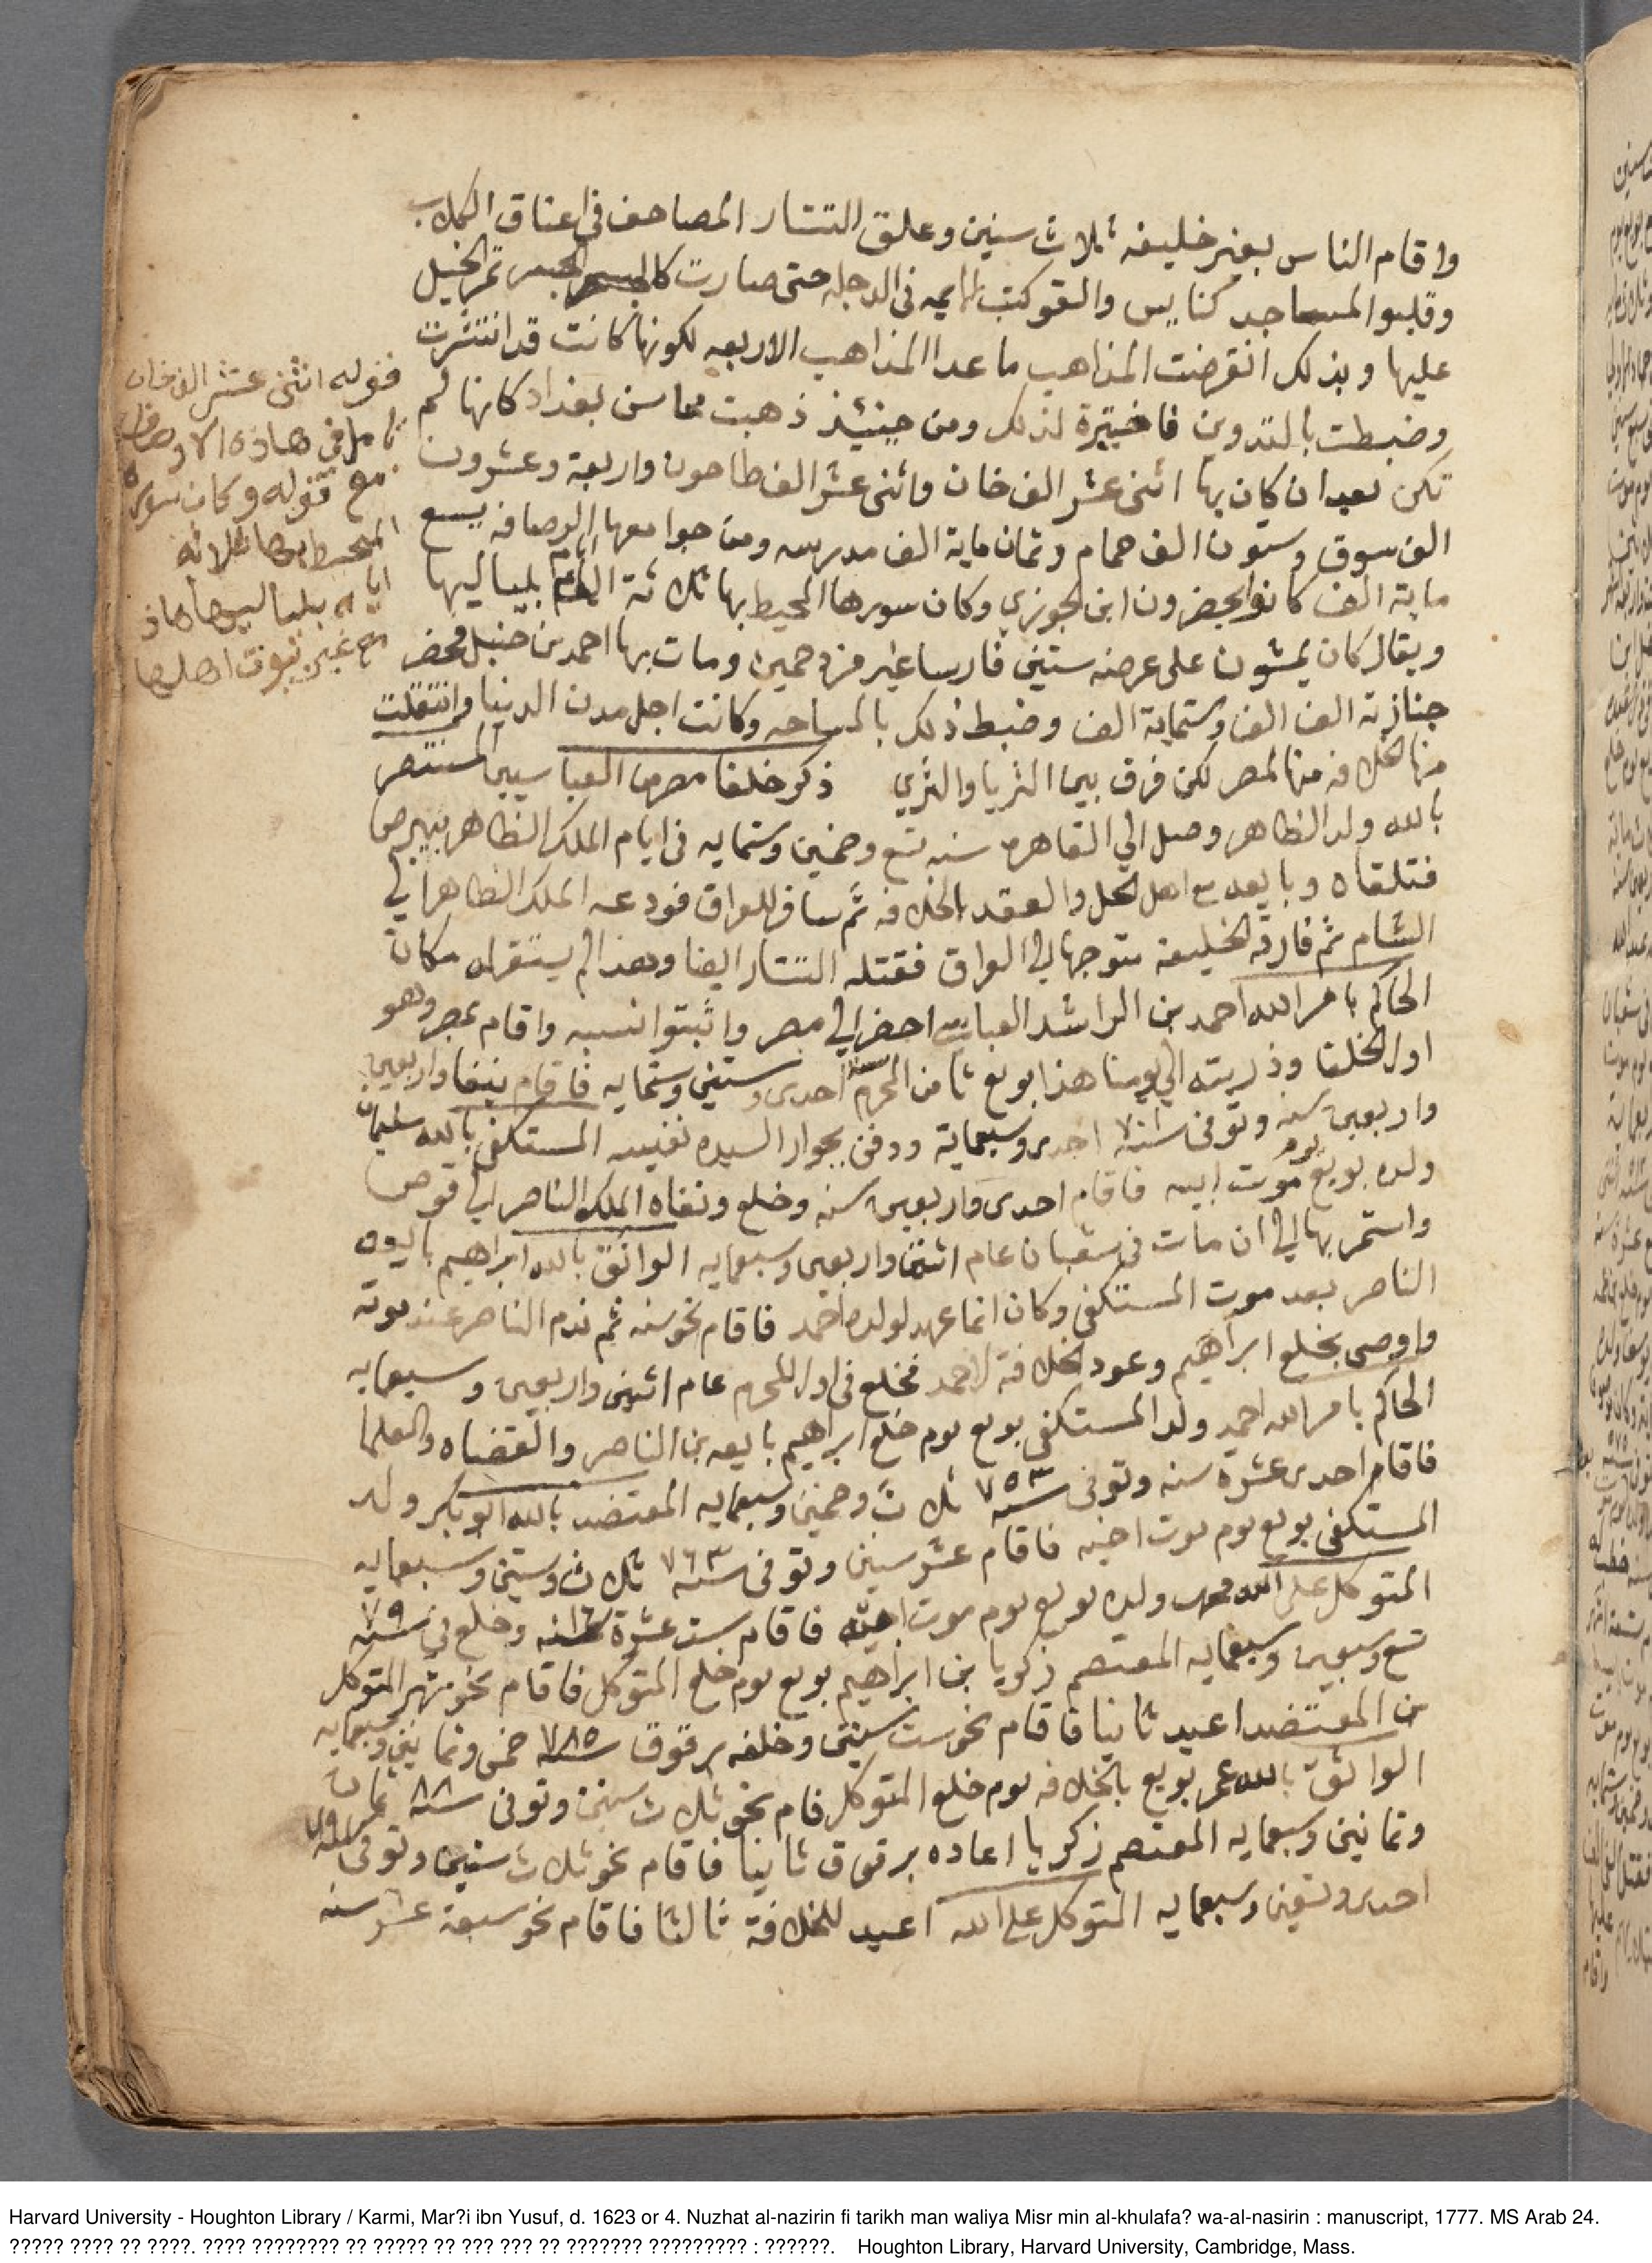 واقام الناس بغير خليفه ثلاث سنين وعلق التتار المصاحف في اعناق الكلاب
وقلبوا المساجد كنايس والقو كتب الايمه في الدجله حتى صارت كالجسر تمر الخيل
عليها وبذلك انقرضت المذاهب ما عدا المذاهب الاربعه لكونها كانت قد انتشرت
وضبطت بالتدوين فاخيرة لذلك ومن حينئذ ذهبت محاسن بغداد كانها لم
تكن بعد ان كان بها اثنى عشر الف خان واثنى عشر الف طاحون واربعة وعشرون
الف سوق وستون الف حمام وثمان ماية الف مدرسه ومن جوامعها الرصافه يسع
ماية الف كانوا يحضرون ابن الجوزي وكان سورها المحيط بها ثلاثة ايام بلياليها
ويقال كان يمشون على عرضه ستين فارسا غير مزدحمين ومات بها احمد بن حنبل فحضر
جنازته الف الف وستماية الف وضبط ذلك بالمساحه وكانت اجل مدن الدنيا وانتقلت
منها الخلافه منها لمصر لكن فرق بين الثريا والثري ذكر خلفا مصر من العباسيين المستنصر
بالله ولد الظاهر وصل الي القاهره سنه تسع وخمسين وستمايه في ايام الملك الظاهر بيبرس
فتلقاه وبايعه مع اهل الحل والعقد بالخلافه ثم سافر للعراق فودعه الملك الظاهر الي
الشام ثم فارقه الخليفه متوجها الي العراق فقتله التتار ايضا وهذا لم يستقر له مكان
الحاكم بامر الله احمد بن الراشد العباسي احضر الي مصر واثبتوا نسبه واقام بمصر وهو
اول الخلفا وذريته الي يومنا هذا بويع ثامن المحرم سنة احدى وستين وستمايه فاقام نيفا واربعين
واربعين سنه وتوفى سنة ٧٠١ احدى وسبعماية ودفن بجوار السيده نفيسه المستكفي بالله سليمان
ولده بويع يوم موت ابيه فاقام احدى واربعين سنه وخلع ونفاه الملك الناصر الي قوص
واستمر بها الي ان مات في شعبان عام اثنين واربعين وسبعمايه الواثق بالله ابراهيم بايعه
الناصر بعد موت المستكفي وكان انما عهد لولده احمد فاقام نحو سنه ثم ندم الناصر عند موته
واوصى بخلع ابراهيم وعود الخلافة لاحمد فخلع في اول المحرم عام اثنين واربعين وسبعمايه
الحاكم بامر الله احمد ولد المستكفي بويع يوم خلع ابراهيم بايعه بن الناصر والقضاه والعلما
فاقام احدى عشرة سنه وتوفى سنة ٧٥٣ ثلاث وخمسين وسبعمايه المعتضد بالله ابوبكر ولد
المستكفي بويع يوم موت اخيه فاقام عشر سنين وتوفى سنة ٧٦٣ ثلاث وستين وسبعمايه
المتوكل على الله محمد ولده بويع يوم موت ابيه فاقام ست عشرة ١٦ سنه وخلع في سنة ٧٧٩
تسع وسبعين وسبعمايه المعتصم زكريا بن ابراهيم بويع يوم خلع المتوكل فاقام نحو شهر المتوكل
بن المعتضد اعيد ثانيا فاقام نحو ست سنين وخلفه برقوق سنة ٧٨٥ خمس وثمانين وسبعمايه
الواثق بالله عمر بويع بالخلافه يوم خلع المتوكل فام نحو ثلاث سنين وتوفى سنة ٨٨ ثمان
وثمانين وسبعمايه المعتصم زكريا اعاده برقوق ثانيا فاقام نحو ثلاث سنين وتوفى
احدى وتسعين وسبعمايه المتوكل على الله اعيد للخلافة ثالثا فاقام نحو سبعة عشر سنه
فقوله اثنى عشر الف خان
تامل في هاذه الاوصاف
مع قوله وكان سوره
المحيط بها ثلاثه
ايام بلياليها هاذ
غير بيوت اهلها